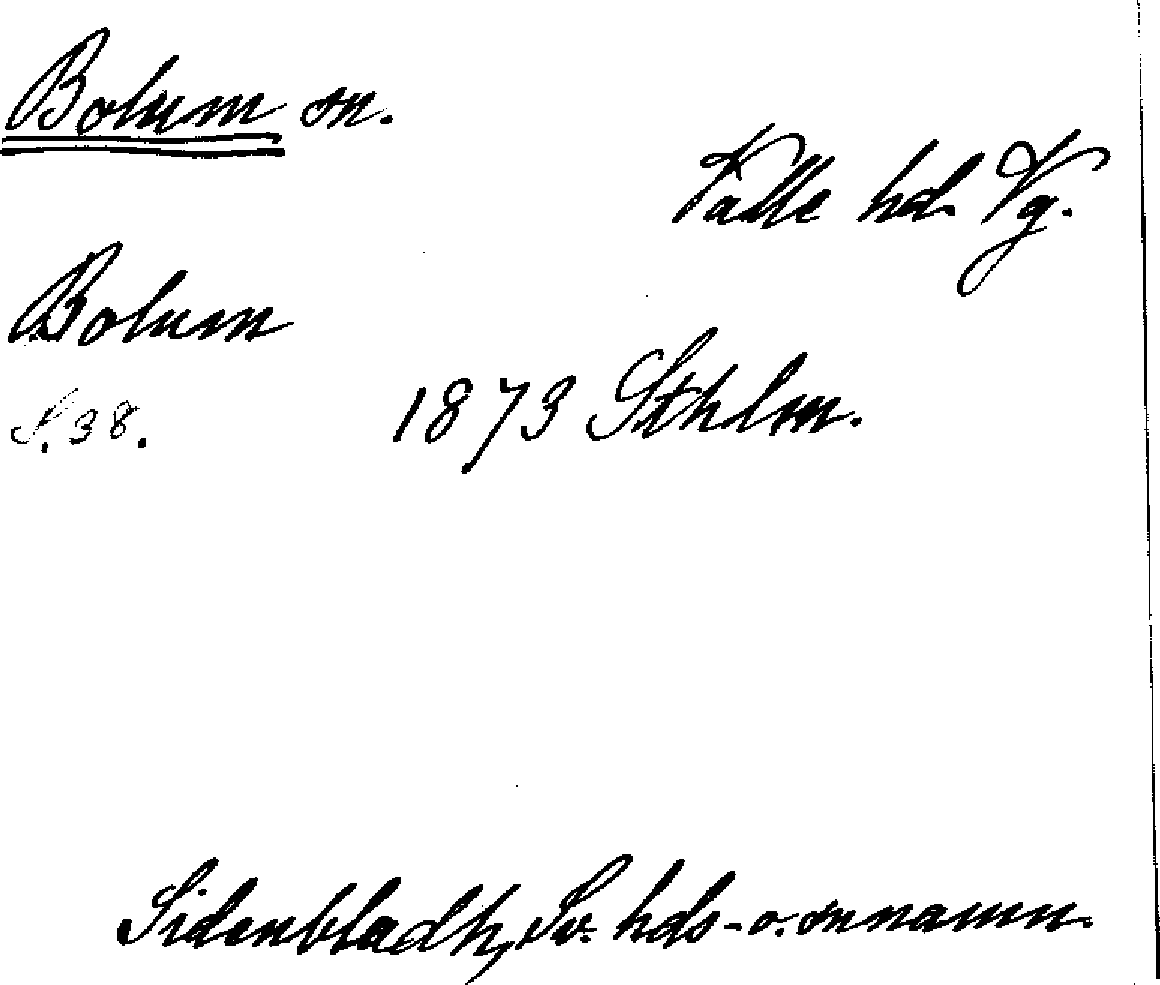 Bolum sn.
Valle hd. Vg.
Bolum
S. 38. 1873 Sthlm.
Sidenbladh, Sv. hds- o. snnamn.